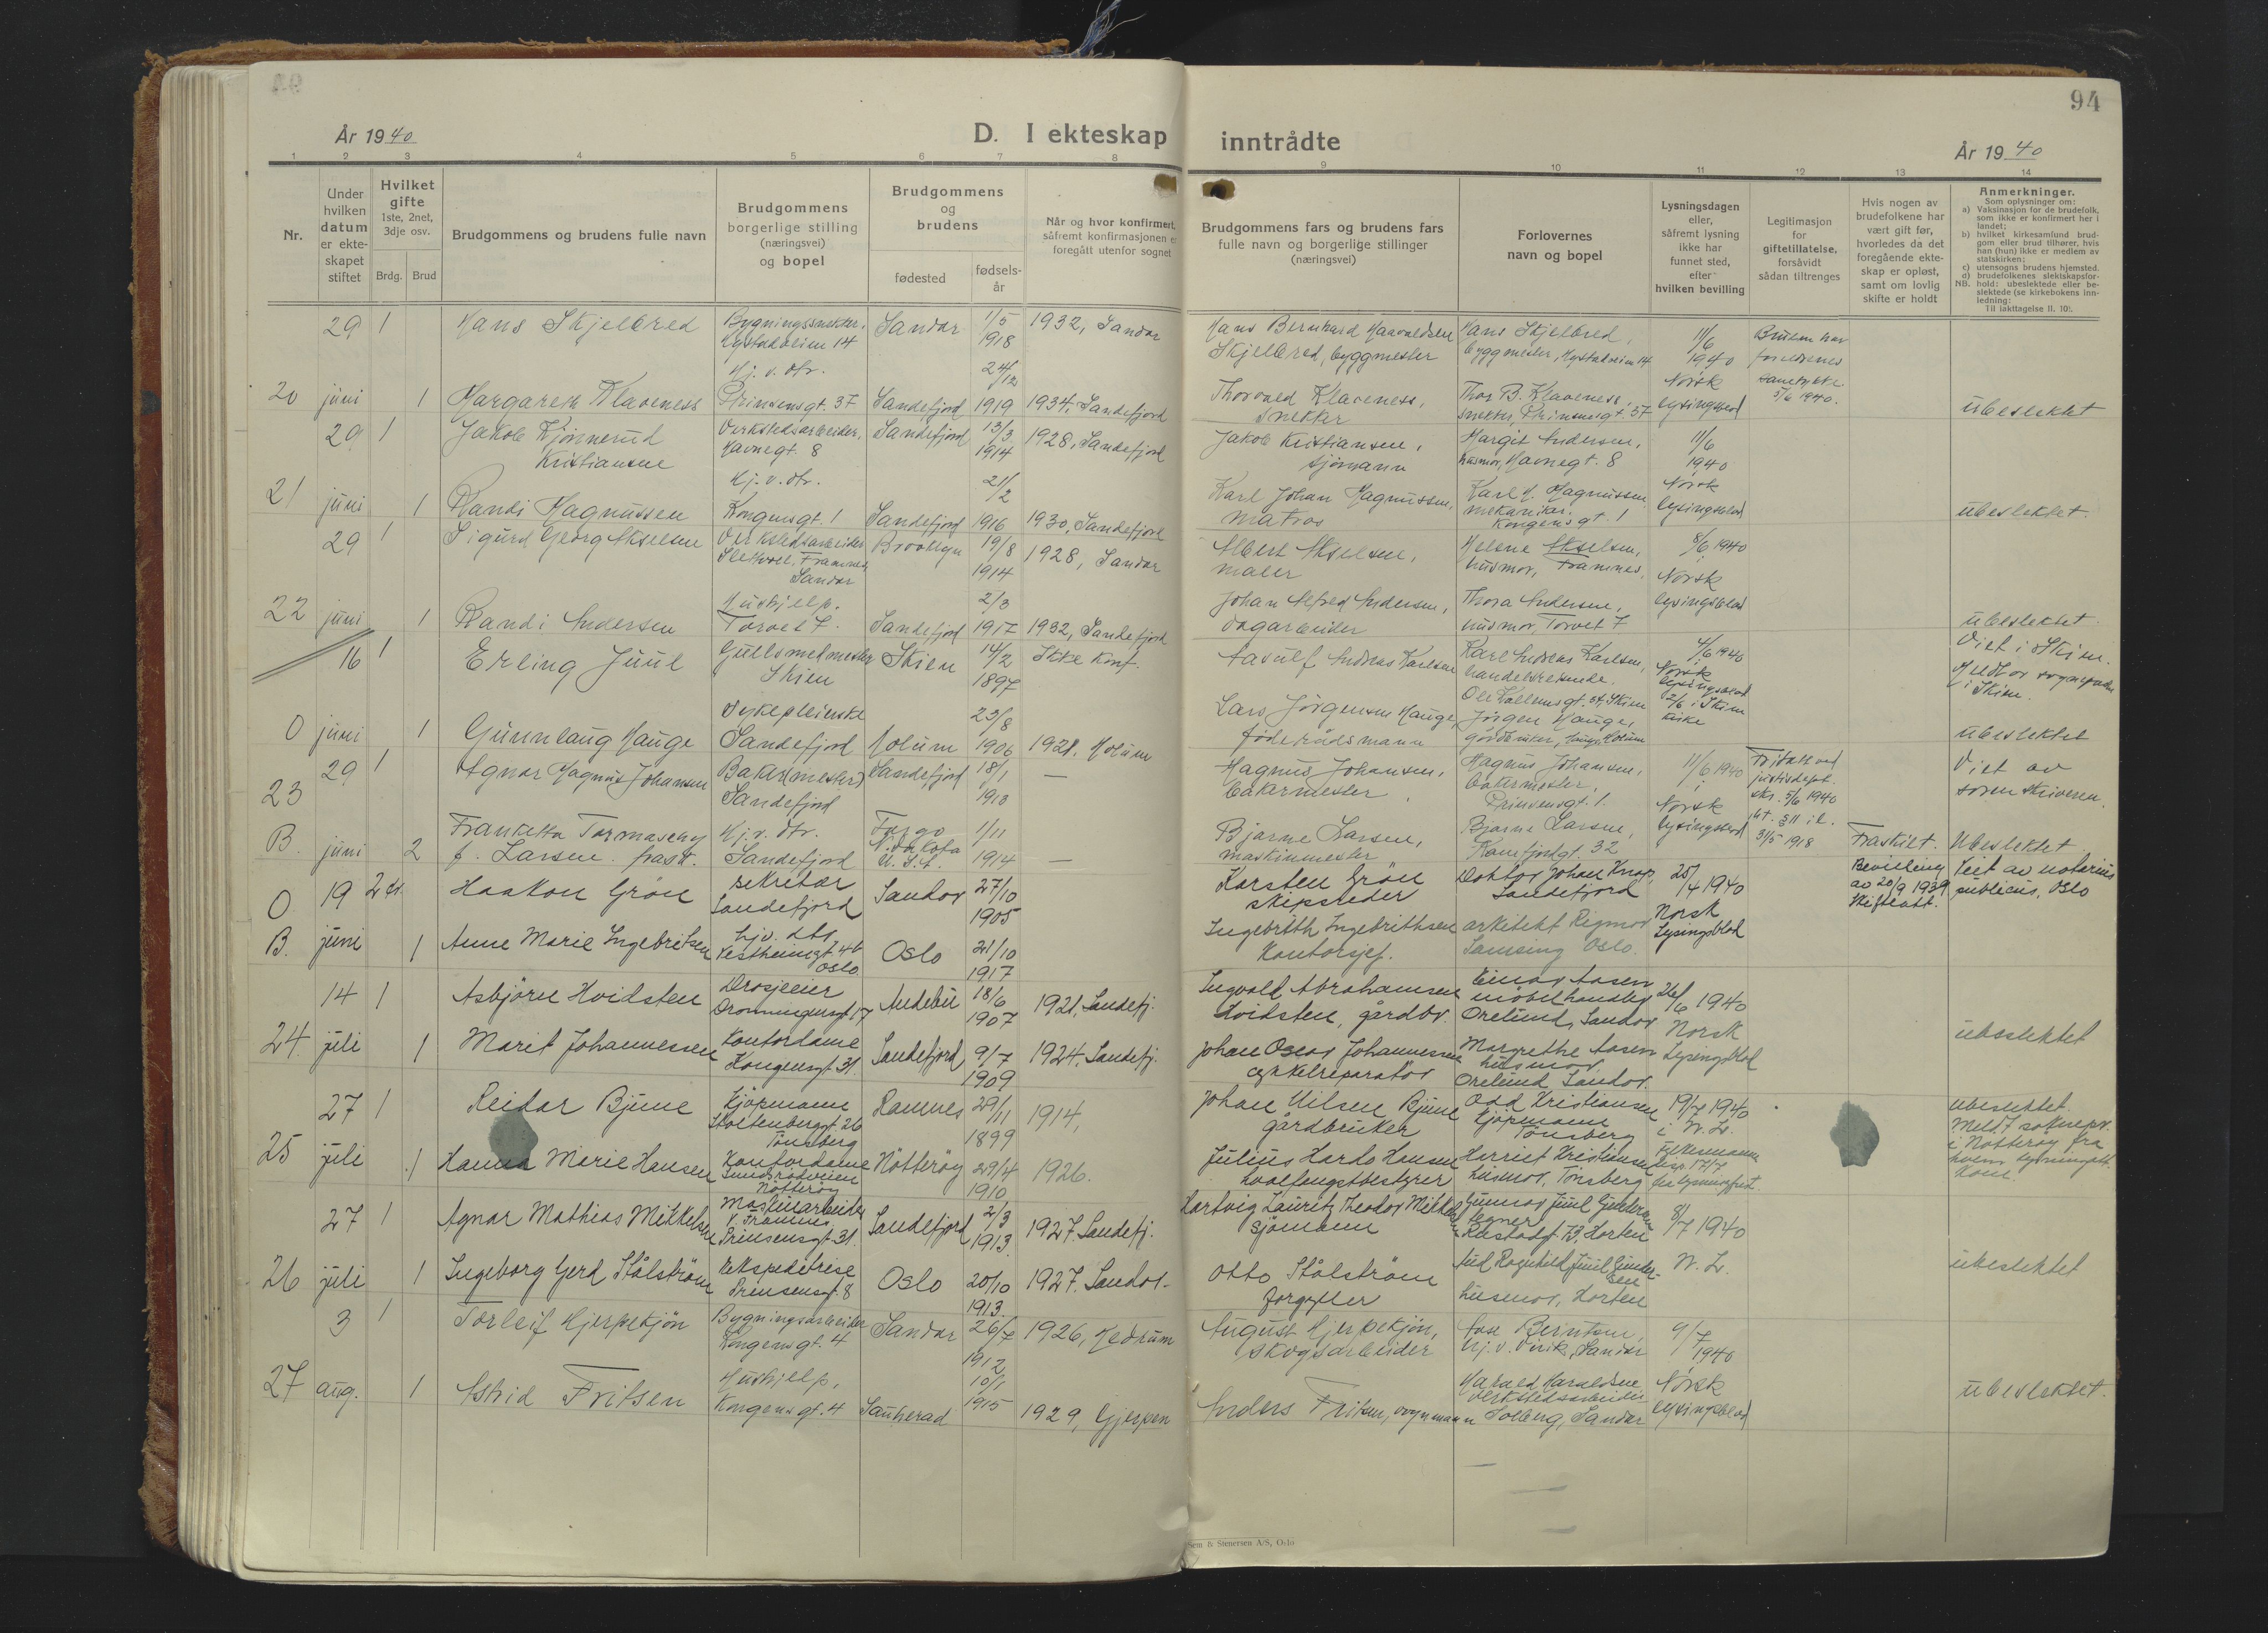 94
År 1940
D. I ekteskap inntrådte
År 1940
1 2 3 4 5 6 7 8 9 10 11 12 13 14
Nr.
Under hvilken datum er ekteskapet stiftet
Hvilket gifte 1ste, 2net, 3dje osv.
Brdg. Brud
Brudgommens og brudens fulle navn
Brudgommens borgerlige stilling (næringsvei) og bopel
Brudgommens og brudens
fødested
fødselsår
Når og hvor konfirmert, såfremt konfirmasjonen er foregått utenfor sognet
Brudgommens fars og brudens fars fulle navn og borgerlige stillinger (næringsvei)
Forlovernes navn og bopel
Lysningsdagen eller, såfremt lysning ikke har funnet sted, efter hvilken bevilling
Legitimasjon for giftetillatelse, forsåvidt sådan tiltrenges
Hvis nogen av brudefolkene har vært gift før, hvorledes da det foregående ekteskap er opløst, samt om lovlig skifte er holdt
Anmerkninger.
Som oplysninger om:
a) Vaksinasjon for de brudefolk, som ikke er konfirmert her i landet;
b) hvilket kirkesamfund brudgom eller brud tilhører, hvis han (hun) ikke er medlem av statskirken;
c) utensogns brudens hjemsted.
d) brudefolkenes slektskapsforhold: ubeslektede eller beslektede (se kirkebokens innledning:
NB.
Til iakttagelse II. 10).
20
29 juni
1 Hans Skjelbred
Bygningssnekker, Nystadveien 14
Sandar 1/5 1918
1932, Sandar
Hans Bernhard Haavaldsen Skjelbred, byggmester
Hans Skjelbred, byggmester, Nystadveien 14
11/6 1940 Norsk lysingsblad
Bruden har foreldrenes samtykke. 5/6 1940.
1 Margareth Klaveness
Hj. v. dtr. Prinsensgt. 37
Sandefjord 24/12 1919
1934, Sandefjord
Thorvald Klaveness, snekker
Thor B. Klaveness, snekker, Prinsensgt. 37
ubeslektet
21
29 juni
1 Jakob Kjønnerud Kristiansen
Verkstedsarbeider, Havnegt. 8
Sandefjord 13/3 1914
1928, Sandefjord
Jakob Kristiansen, sjømann
Margit Andersen, husmor, Havnegt. 8
11/6 1940 Norsk lysingsblad
1 Randi Magnussen
Hj. v. dtr. Kongensgt. 1
Sandefjord 21/2 1916
1930, Sandefjord
Karl Johan Magnussen, matros
Karl M. Magnussen mekaniker, Kongensgt. 1
ubeslektet.
22
29 juni
1 Sigurd Georg Akselsen
Verkstedsarbeider Framnes, Sandar
Brooklyn 19/8 1914
1928, Sandar
Albert Akselsen, maler
Helene Akselsen, husmor, Framnes,
8/6 1940 Norsk lysingsblad
1 Randi Andersen
Hushjelp. Torvet 7.
Sandefjord 2/3 1917
1932, Sandefjord
Johan Alfred Andersen, dagarbeider
Thora Andersen, husmor, Torvet 7
ubeslektet.
0
16 juni
1 Erling Juul
Gullsmedmester Skien
Skien 14/2 1897
Ikke konf.
Aasulf Andreas Karlsen
Karl Andreas Karlsen, handelsreisende,
4/6 1940 Norsk lysingsblad 2/6 i Skien kirke
Viet i Skien. Meldt av sognepresten i Skien.
1 Gunnlaug Hauge
Sykepleierske Sandefjord
Holum 23/8 1906
1921, Holum
Lars Jørgensen Hauge, føderådsmann
Jørgen Hauge, gårdbruker, Hauge, Holum
ubeslektet
23 B.
29 juni
1 Agnar Magnus Johansen
Baker(mester) Sandefjord
Sandefjord 18/1 1913
—
Magnus Johansen, bakermester
Magnus Johansen, bakermester, Prinsensgt. 1.
11/6 1940 Norsk lysingsblad
Fritatt ved justisdept. skr. 5/6 1940 31/5 1918
Viet av sorenskriveren.
2 Franketta Tormaschy f. Larsen. frask.
Hj. v. dtr. Sandefjord
Fargo N. Dakota U.S.A. 1/11 1914
—
Bjarne Larsen, maskinmester
Bjarne Larsen, Ranefjordgt. 32
Fraskilt.
Ubeslektet
0 B.
19 juni
2det Haakon Grøn
sekretær Sandefjord
Sandar 27/10 1905
Karsten Grøn skipsreder
Doktor Johan Knap, Sandefjord
25/4 1940 Norsk Lysingsblad
Bevilling av 20/9 1939 Skifteatt.
Viet av notarius publicus, Oslo
1 Anne Marie Ingebrithsen
hjv. dtr. Vestheimgt. 4b Oslo
Oslo 21/10 1917
Ingebrith Ingebrithsen Kontorsjef.
arkitekt Rigmor Samsing Oslo.
24.
14 juli
1 Asbjørn Hvidsten
Drosjeeier Dronningensgt 17
Andebu 18/6 1907
1921, Sandefj.
Ingvald Abrahamsen Hvidsten, gårdbr.
Einar Aasen møbelhandler Orelund, Sandar
26/6 1940 Norsk Lysingsblad
1 Marit Johannessen
Kontordame Kongensgt 31.
Sandefjord 9/7 1909
1924, Sandefj.
Johan Oscar Johannessen cykkelreparatør
Margrethe Aasen husmor, Orelund, Sandar.
ubeslektet
25
27 juli
1 Reidar Bjune
Kjøpmann Stoltenbergsgt. 26 Tønsberg
Ramnes 29/11 1899
1914,
Johan Nilsen Bjune gårdbruker
Odd Kristiansen kjøpmann Tønsberg
19/7 1940 i N. L.
ubeslektet. Meldt soknepr. i Nøtterøy fra hvem lysningsatt. kom.
1 Hanna Marie Hansen
Kontordame Nøtterøy
Nøtterøy 29/4 1910
1926.
Julius Hardo Hansen hvalfangstbestyrer
Harriet Kristiansen husmor, Tønsberg
26
27 juli
1 Agnar Mathias Mikkelsen
Maskinarbeider v. Framnes Prinsensgt 31.
Sandefjord 2/3 1913.
1927, Sandefj.
Hartvig Lauritz Theodor Mikkelsen sjømann
Gunnar Juul Gundersen tegner Rustadgt 73, Horten
8/7 1940 N. L.
1 Ingeborg Gerd Stålstrøm
Ekspeditrise Prinsensgt. 8
Oslo 20/10 1913.
1927. Sandar
Otto Stålstrøm forgyller
Aud Ragnhild Juul Gundersen husmor, Horten
ubeslektet
27
3 aug.
1 Torleif Hjerpekjøn
Bygningsarbeider Kongensgt. 4
Sandar 26/7 1912
1926, Hedrum
August Hjerpekjøn, skogsarbeider
Aase Berntsen, hj. v. Virik, Sandar
9/7 1940 Norsk lysingsblad
1 Astrid Fritsen
Hushjelp, Kongensgt. 4
Sauherad 10/1 1915
1929, Gjerpen
Anders Fritsen, vognmann
Harald Haraldsen verkstedsarbeider Solberg, Sandar
ubeslektet.
Sem & Stenersen A/S, Oslo